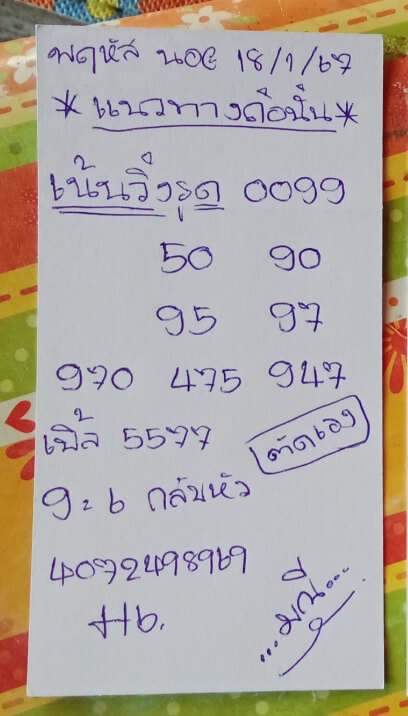 พฤหัส นอย 18/1/67
*แนวทางดือนั้น*
เน้นวิ่งรูด 0099
50 90
95 97
970 475 947
เบิ้ล 5577
ตัดเอง
9=6 กลับหัว
4072498969
H6.
...มณี...